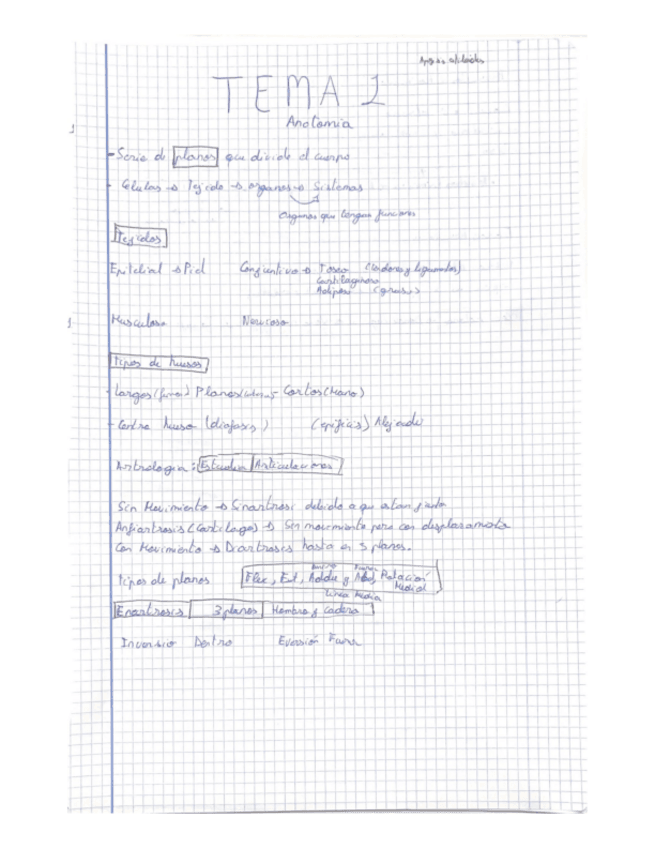 TEMA 1
Anatomia
- Serie de planos que divide el cuerpo
- Celulas → Tejido → organos → Sistemas
Organos que tengan funciones
Tejidos
Epitelial → Piel Conjuntivo → Toseo (tendones y ligamentos)
Cartilaginoso
Adiposo (grasas)
Musculoso Nervioso
Tipos de huesos
- Largos (femur) Planos Cortos (Mano)
- Centro hueso (diafasis) (epifisis) Alejado
Artrologia: Estudia Articulaciones
Sin Movimiento → Sinartrosi debido a que estan junto
Anfiartrosis (Cartilago) → Sin movimiento pero con desplazamiento
Con Movimiento → Diartrosis hasta en 3 planos.
tipos de planos Flex, Ext, Addu y Abd, Rotación Medial
Dentro Fuera
Linea Media
Enartrosis 3 planos Hombro y cadera
Inversion Dentro Eversión Fuera